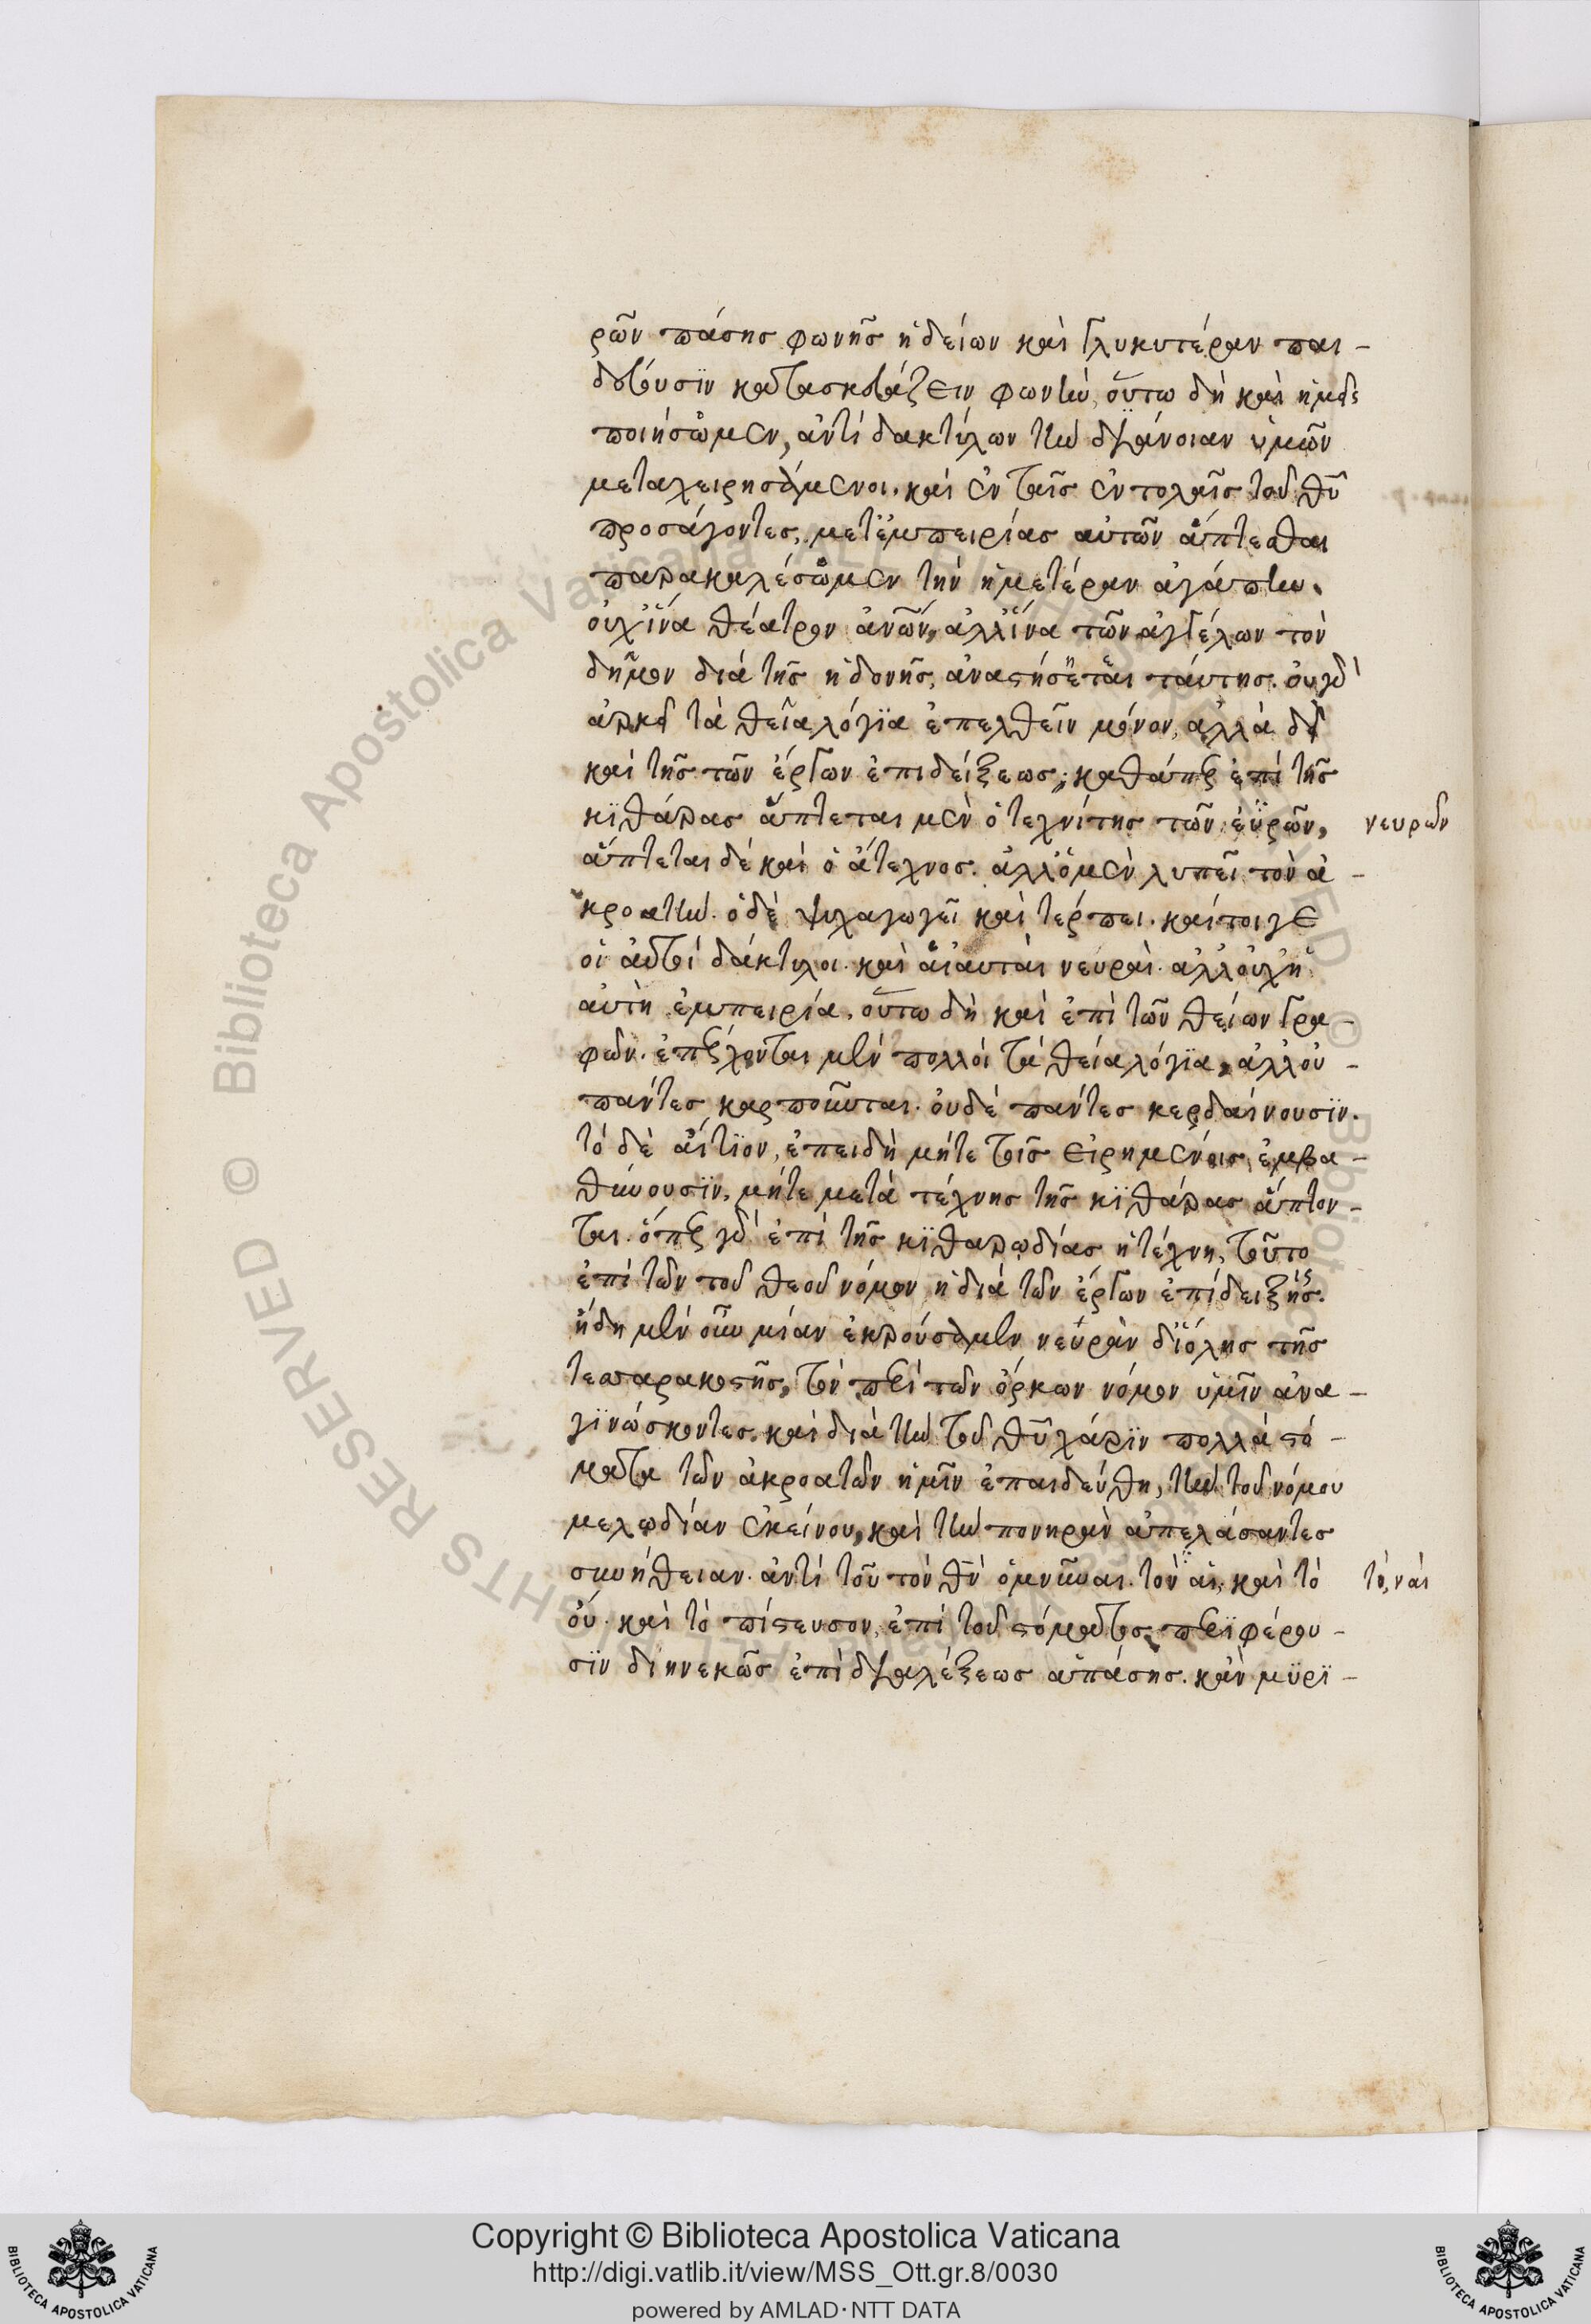 ρῶν πάσης φωνῆς ἡδείων καὶ γλυκυτέραν παι-
δεύουσϊν κατασκευάζειν φωνὴν, οὕτω δὴ καὶ ἡμεῖς
ποιήσωμεν, ἀντὶ δακτύλων τὴν διάνοιαν ὑμῶν
μεταχειρησάμενοι. καὶ ἐν ταῖς ἐντολαῖς τοῦ θῦ
προσάγοντες, μετ' ἐμπειρίας αὐτῶν ἅπτεσθαι
παρακαλέσωμεν τὴν ἡμετέραν ἀγάπην.
οὐχ' ἵνα θέατρον ἀνῶν, ἀλλ' ἵνα τῶν ἀγγέλων τὸν
δῆμον διὰ τῆς ἡδονῆς, ἀναστήσηται ταύτης. οὐ γὰρ
ἀρκεῖ τὰ θεῖα λόγϊα ἐπελθεῖν μόνον, ἀλλὰ δεῖ
καὶ τῆς τῶν ἔργων ἐπιδείξεως; καθάπερ ἐπὶ τῆς
κϊθάρας ἅπτεται μὲν ὁ τεχνίτης τῶν εὑρῶν,
νευρῶν
ἅπτεται δὲ καὶ ὁ ἄτεχνος. ἀλλ' ὁ μὲν λυπεῖ τὸν ἀ-
κροατὴν. ὁ δὲ ψυχαγωγεῖ καὶ τέρπει. καίτοιγε
οἱ αὐτοὶ δάκτυλοι. καὶ αἱ αὐταὶ νευραὶ. ἀλλ' οὐχ' ἡ
αὐτὴ ἐμπειρία. οὕτω δὴ καὶ ἐπὶ τῶν θείων γρα-
φῶν. ἐπέρχονται μὲν πολλοὶ τὰ θεία λόγϊα, ἀλλ' οὐ-
πάντες καρποῦνται. οὐδὲ πάντες κερδαίνουσϊν.
τὸ δὲ αἴτϊον, ἐπειδὴ μήτε τοῖς εἰρημένοις ἐμβα-
θύνουσϊν, μήτε μετὰ τέχνης τῆς κϊθάρας ἅπτον-
ται. ὅπερ γὰρ ἐπὶ τῆς κϊθαρωδίας ἡ τέχνη, τοῦτο
ἐπὶ τῶν τοῦ θεοῦ νόμον ἡ διὰ τῶν ἔργων ἐπίδειξης.
ἤδη μὲν οὖν μίαν ἐκρούσαμεν νευρὰν δι' ὅλης τῆς
τεσσαρακοστῆς, τὸν περὶ τῶν ὅρκων νόμον ὑμῖν ἀνα-
γϊνώσκοντες. καὶ διὰ τὴν τοῦ θῦ χάρϊν πολλὰ στό-
ματα τῶν ἀκροατῶν ἡμῖν ἐπαιδεύθη, τὴν τοῦ νόμου
μελωδίαν ἐκείνου, καὶ τὴν πονηρὰν ἀπελάσαντες
συνήθειαν. ἀντὶ τοῦ τὸν θν ὀμνύναι. τὸν αι, καὶ τὸ
τὸ, ναὶ
οὐ. καὶ τὸ πίστευσον, ἐπὶ τοῦ στόματος περϊφέρου-
σϊν διηνεκῶς ἐπὶ διαλέξεως ἁπάσης. κἂν μϋρϊ-
Copyright © Biblioteca Apostolica Vaticana
http://digi.vatlib.it/view/MSS_Ott.gr.8/0030
powered by AMLAD·NTT DATA